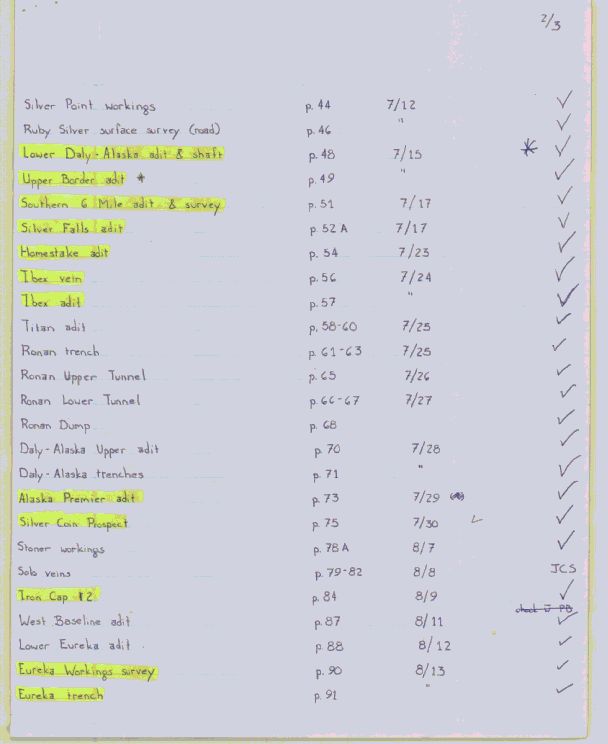 2/3
Silver Point workings p. 44 7/12 ✓
Ruby Silver surface survey (road) p. 46 " ✓
Lower Daly-Alaska adit & shaft p. 48 7/15 * ✓
Upper Border adit * p. 49 " ✓
Southern 6 Mile adit & survey p. 51 7/17 ✓
Silver Falls adit p. 52 A 7/17 ✓
Homestake adit p. 54 7/23 ✓
Ibex vein p. 56 7/24 ✓
Ibex adit p. 57 " ✓
Titan adit p. 58-60 7/25 ✓
Ronan trench p. 61-63 7/25 ✓
Ronan Upper Tunnel p. 65 7/26 ✓
Ronan Lower Tunnel p. 66-67 7/27 ✓
Ronan Dump p. 68 ✓
Daly-Alaska Upper adit p. 70 7/28 ✓
Daly-Alaska trenches p. 71 " ✓
Alaska Premier adit p. 73 7/29 ✓
Silver Coin Prospect p. 75 7/30 ✓
Stoner workings p. 78 A 8/7 ✓
Solo veins p. 79-82 8/8 JCS
Iron Cap #2 p. 84 8/9 ✓
check
West Baseline adit p. 87 8/11 ✓
Lower Eureka adit p. 88 8/12 ✓
Eureka Workings survey p. 90 8/13 ✓
Eureka trench p. 91 " ✓